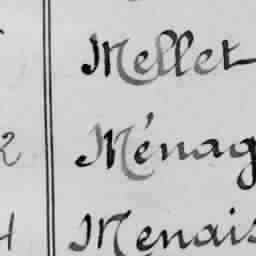 Mellet
2 Ménag
Menais